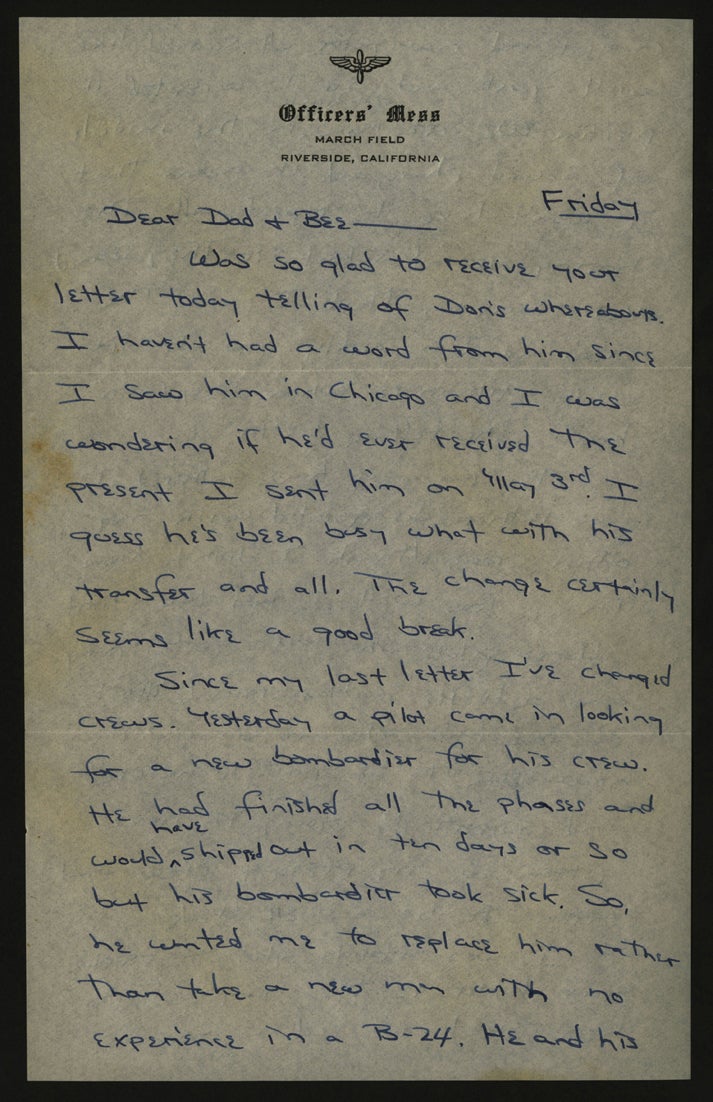 Officers' Mess
MARCH FIELD
RIVERSIDE, CALIFORNIA
Friday
Dear Dad + Bee
Was so glad to receive your
letter today telling of Don's whereabouts.
I haven't had a word from him since
I saw him in Chicago and I was
wondering if he'd ever received the
present I sent him on May 3rd. I
guess he's been busy what with his
transfer and all. The change certainly
seems like a good break.
Since my last letter I've changed
crews. Yesterday a pilot came in looking
for a new bombardier for his crew.
He had finished all the phases and
have
would ^ shipped out in ten days or so
but his bombardier took sick. So,
he wanted me to replace him rather
than take a new man with no
experience in a B-24. He and his